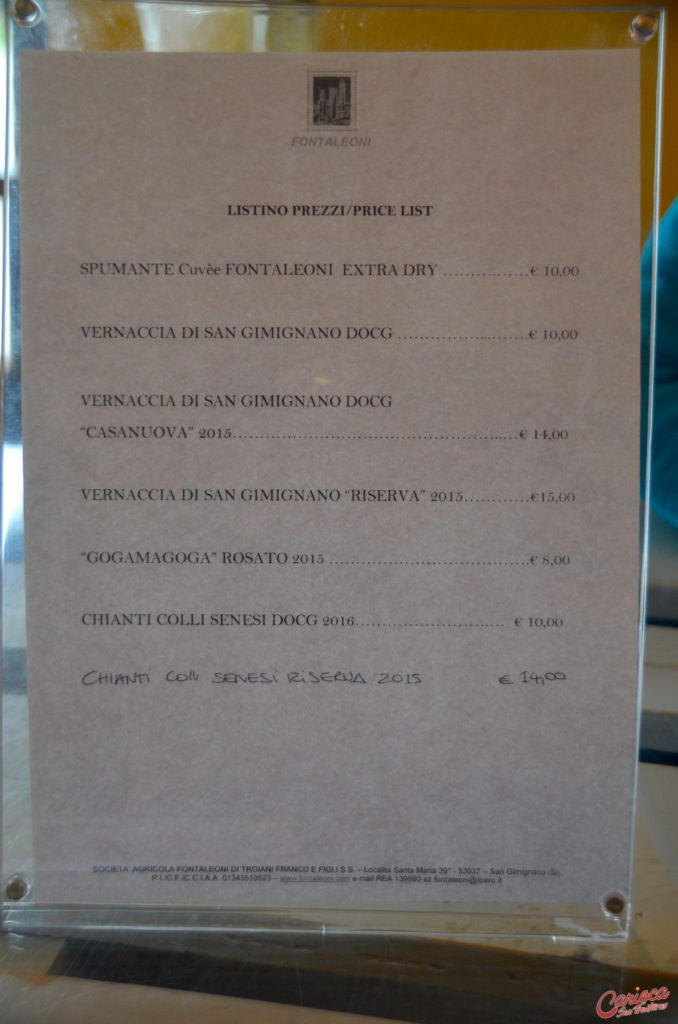 FONTALEONI
LISTINO PREZZI/PRICE LIST
SPUMANTE Cuvèe FONTALEONI EXTRA DRY ………….……€ 10,00
VERNACCIA DI SAN GIMIGNANO DOCG ……………...……..€ 10,00
VERNACCIA DI SAN GIMIGNANO DOCG
“CASANUOVA” 2015……………………………………………...…€ 14,00
VERNACCIA DI SAN GIMIGNANO “RISERVA” 2015…………€15,00
“GOGAMAGOGA” ROSATO 2015 ……………………………….€ 8,00
CHIANTI COLLI SENESI DOCG 2016…………………….… € 10,00
CHIANTI COLLI SENESI RISERVA 2015 € 14,00
SOCIETA' AGRICOLA FONTALEONI DI TROIANI FRANCO E FIGLI S.S. – Località Santa Maria 39° - 53037 – San Gimignano (Si)
P.I./C.F./C.C.I.A.A. 01343510523 – www.fontaleoni.com e-mail REA 139980 az.fontaleoni@libero.it
Carioca
Sem Fronteiras